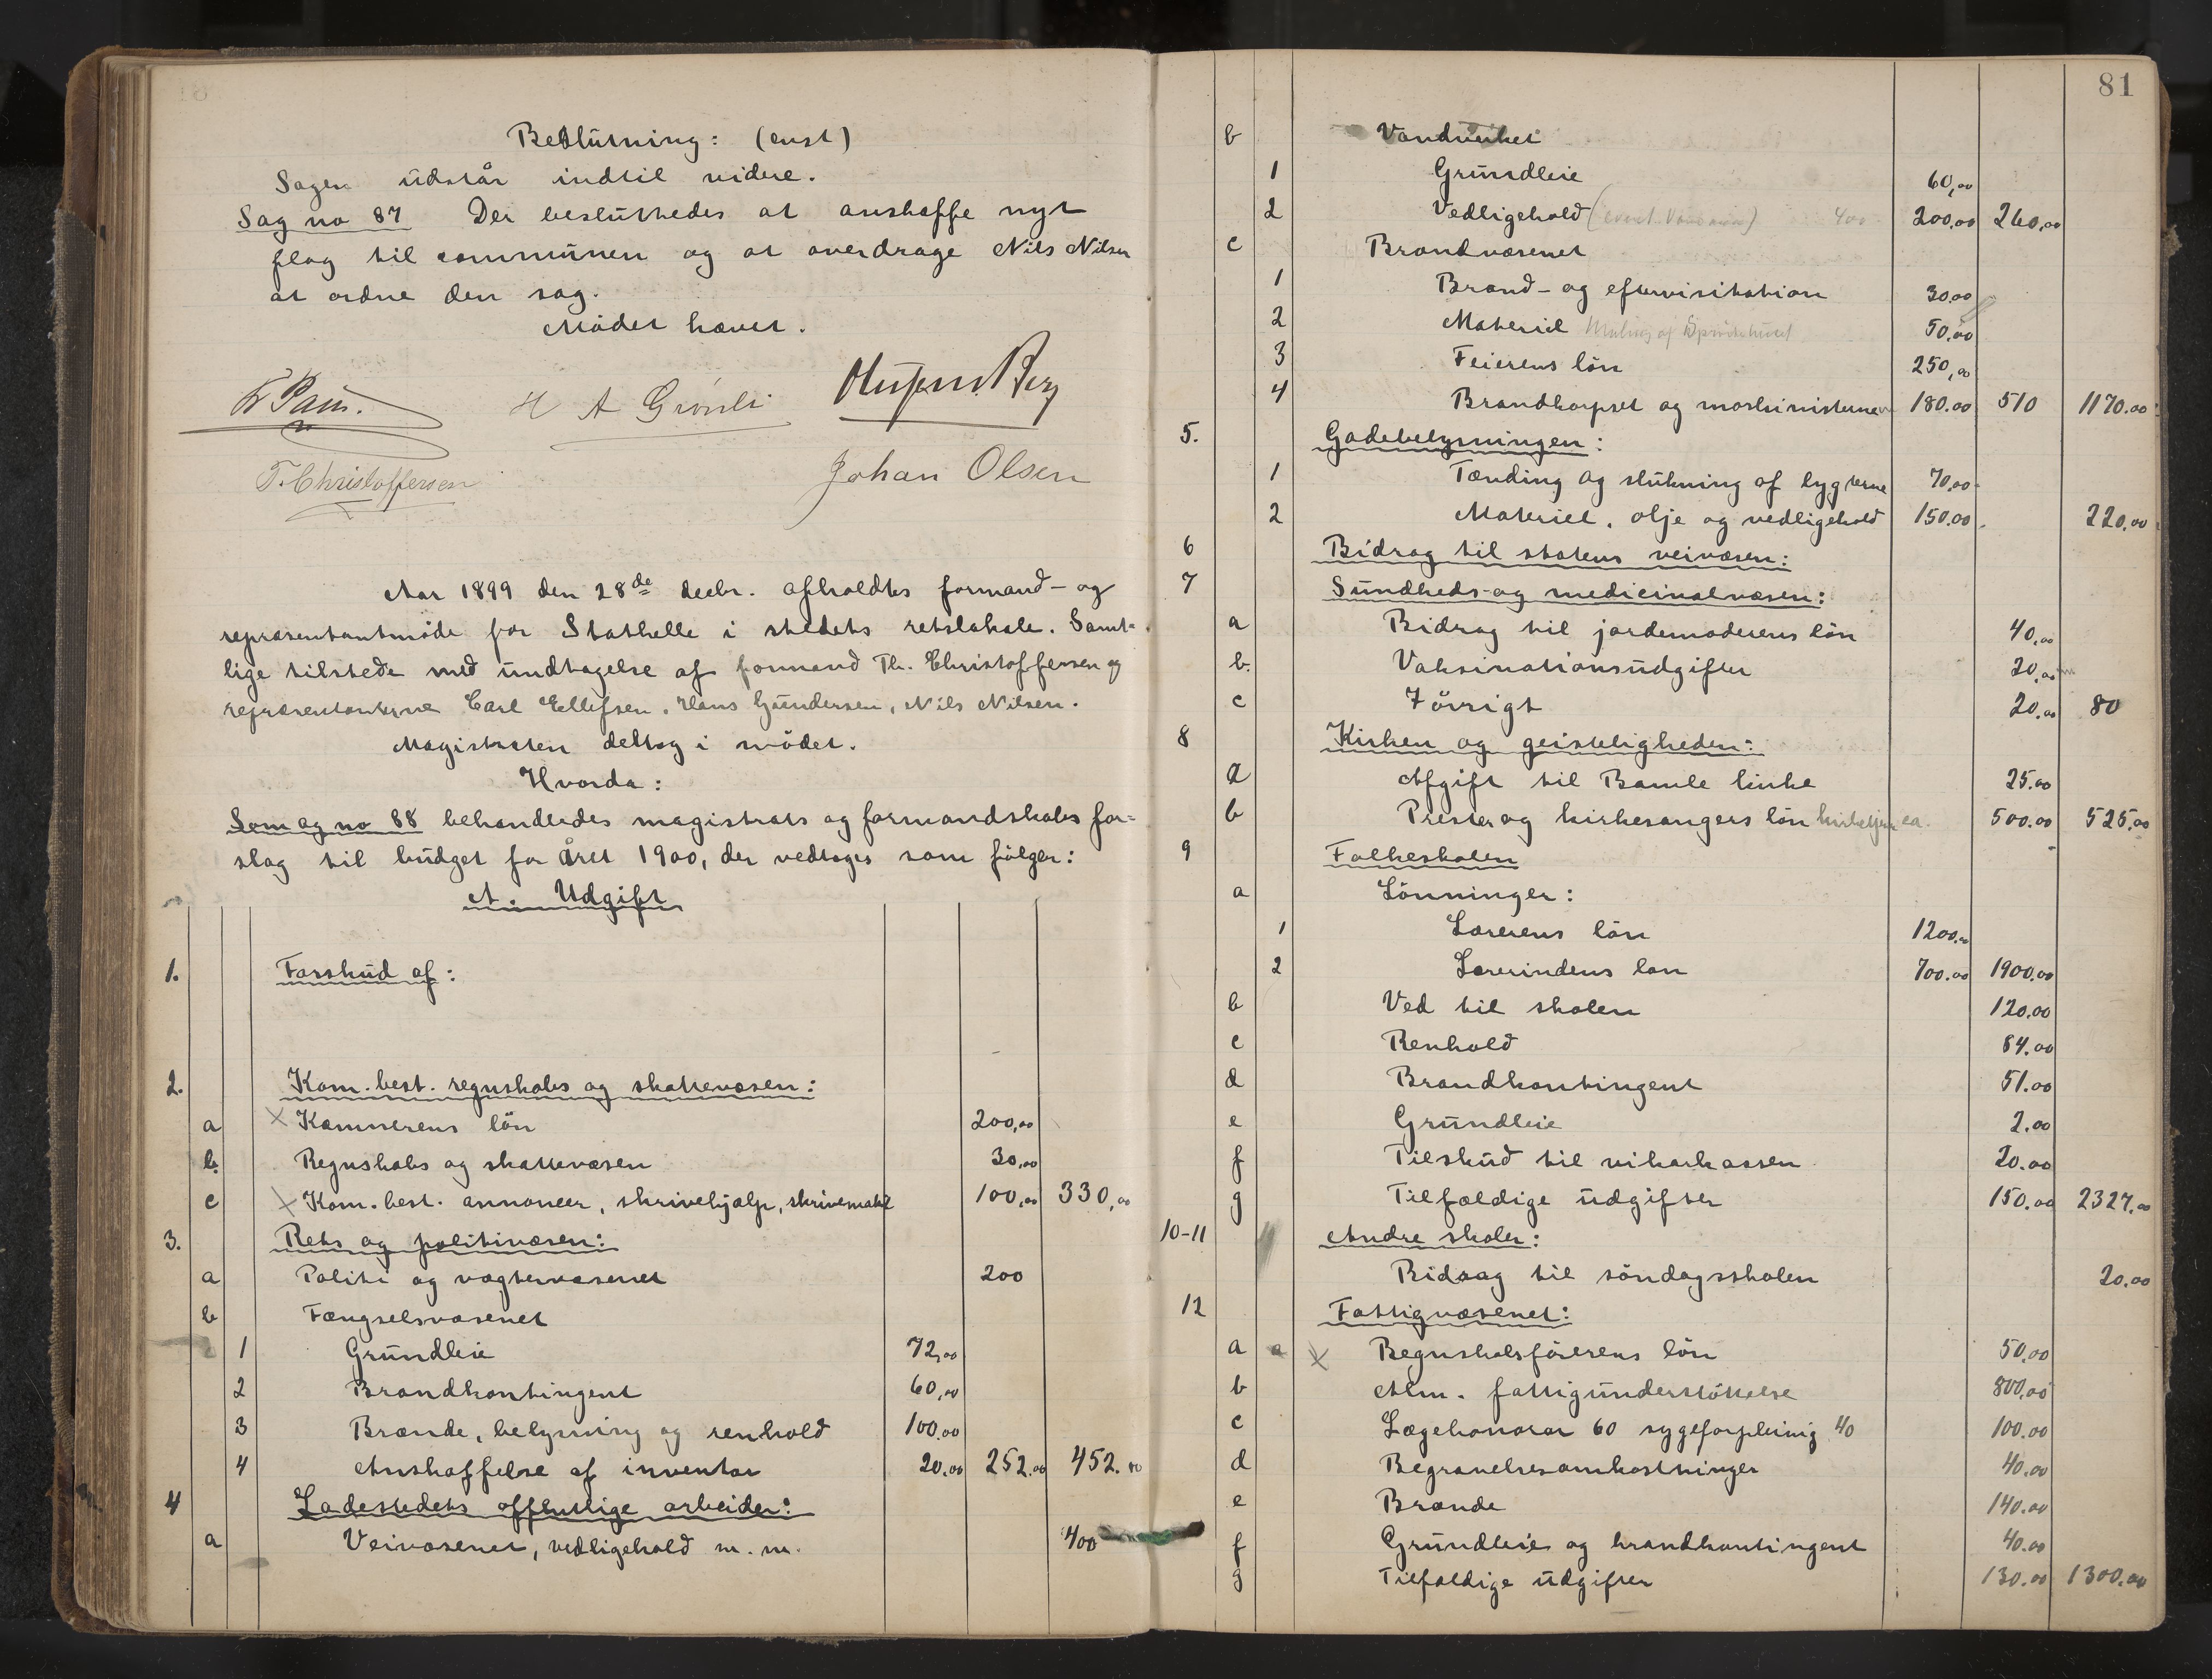 Beslutning: (enst)
Sagen udstår indtil videre.
Sag no 87 Der besluttedes at anskaffe nyt
flag til communen og at overdrage Nils Nilsen
at ordne den sag.
Mødet hævet.
H A Grønli
T. Christoffersen
Johan Olsen
Aar 1899 den 28de decbr. afholdtes formand- og
repræsentantmöde for Stathelle i stedets retslokale. Samt-
lige tilstede med undtagelse af formand Th. Christoffersen og
repræsentanterne Carl Ellefsen, Hans Gundersen, Nils Nilsen.
Magistraten deltog i mödet.
Hvorda:
Som sag no 88 behandledes magistrats og formandskabs for-
slag til budget for året 1900, der vedtoges som fölger:
A. Udgift
1. Forskud af:
2. Kom. best. regnskabs og skattevæsen:
a × Kæmnerens lön 200,00
b. Regnskabs og skattevæsen 30,00
c × Kom. best. annoncer, skrivehjælp, skrivematr 100,00 330,00
3. Rets og politivæsen:
a Politi og vægtervæsenet 200
b Fængselsvæsenet
1 Grundleie 72,00
2 Brandkontingent 60,00
3 Brænde, belysning og renhold 100.00
4 Anskaffelse af inventar 20.00 252.00 452.00
4 Ladestedets offentlige arbeider:
a Veivæsenet, vedligehold m.m. 400
81
b Vandverket
1 Grundleie 60,00
2 Vedligehold 400 200,00 260,00
c Brandvæsenet
1 Brand- og eftervisitation 30,00
2 Materiel Maling af Spröitehuset 50,00
3 Feierens lön 250,00
4 Brandkorpset og maskinisterne 180.00 510 1170.00
5. Gadebelysningen:
1 Tænding og slukning af lygterne 70,00
2 Materiel, olje og vedligehold 150.00 220,00
6 Bidrag til statens veivæsen:
7 Sundheds- og medicinalvæsen:
a Bidrag til jordemoderens lön 40,00
b. Vaksinationsudgifter 20,00
c Iövrigt 20.00 80
8 Kirken og geistligheden:
a Afgift til Bamle kirke 25.00
b Prester og kirkesangers lön 500.00 525,00
9 Folkeskolen
a Lönninger:
1 Lærerens lön 1200.00
2 Lærerindens løn 700.00 1900,00
b Ved til skolen 120.00
c Renhold 84.00
d Brandkontingent 51.00
e Grundleie 2.00
f Tilskud til vikarkassen 20.00
g Tilfældige udgifter 150.00 2327.00
10-11 Andre skoler:
Bidrag til söndagsskolen 20.00
12 Fattigvæsenet:
a × Regnskabsförerens lön 50,00
b Alm. fattigunderstöttelse 800,00
c Lægehonorar 60 sygeforpleinig 40 100.00
d Begravelsesomkostninger 40.00
e Brænde 140.00
f Grundleie og brandkontingent 40.00
g Tilfældige udgifter 130.00 1300.00